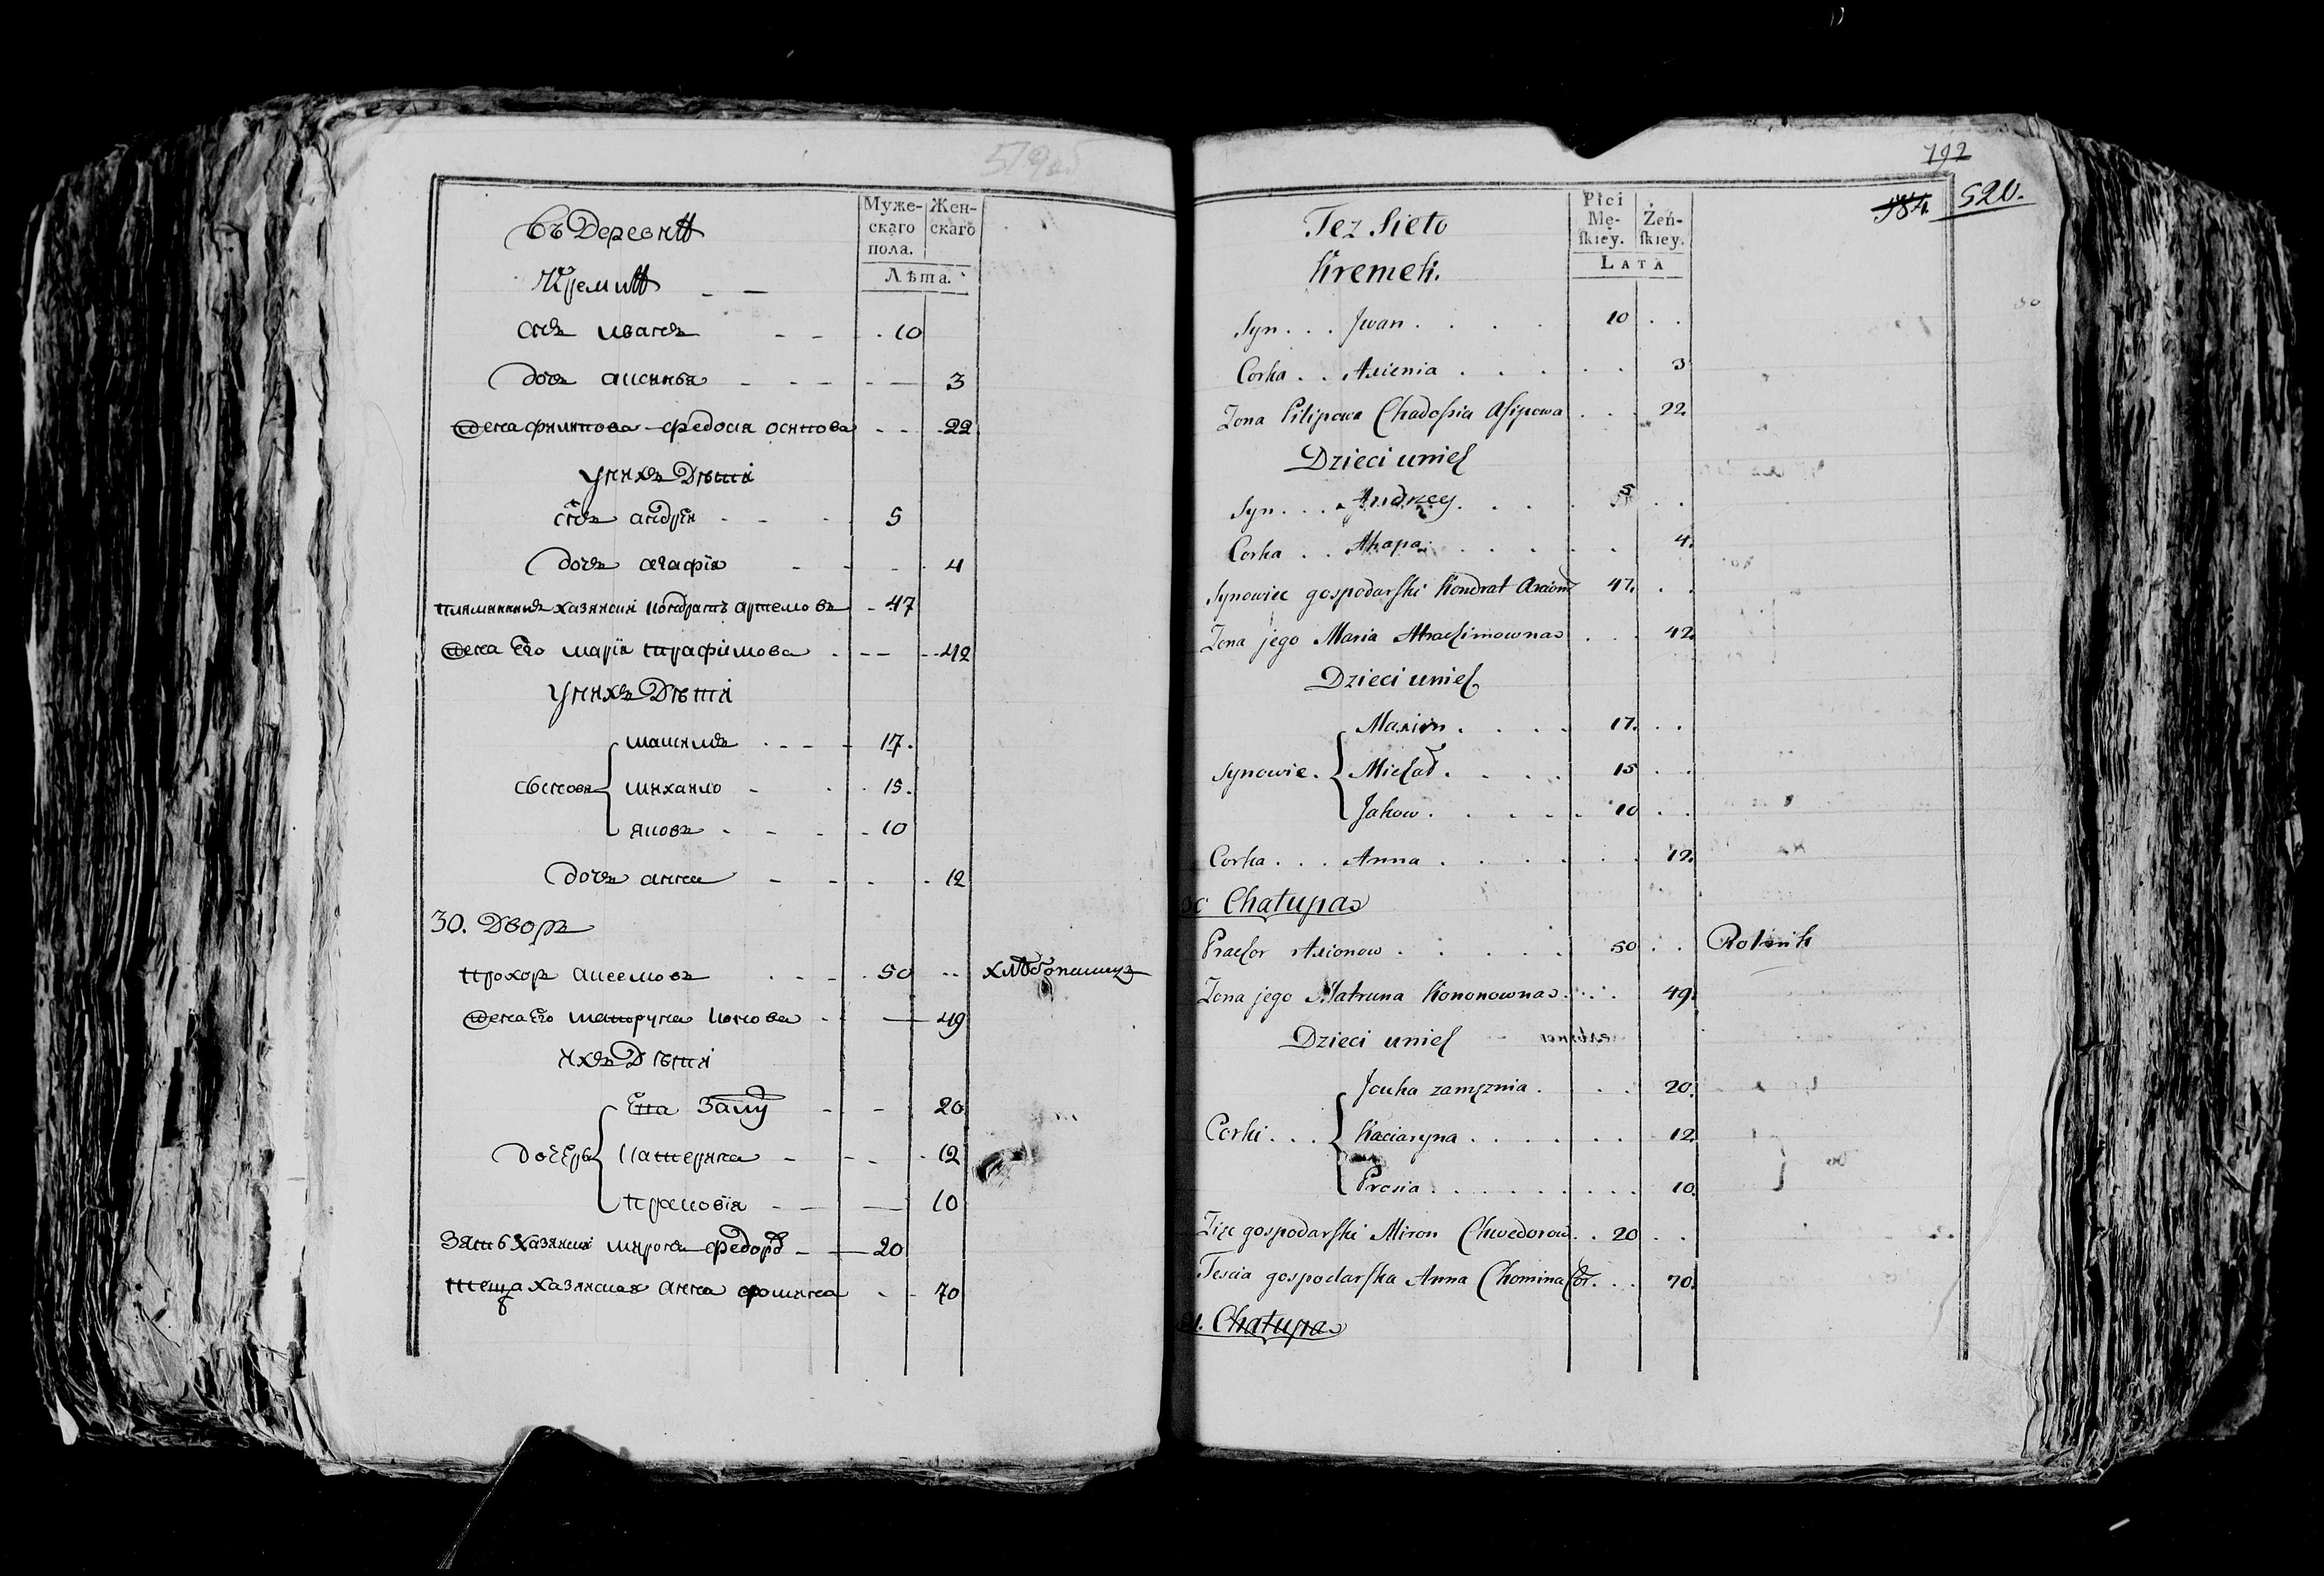 519 об
Муже-
скаго
пола.
Жен-
скаго
Лѣта.
Въ Деревнѣ
Кремкѣ
снъ иванъ 10
дочь аксинья 3
жена филипова федосія осипова 22
У нихъ Дѣти
снъ андрѣй 5
дочь агафія 4
племянникъ хазяйскій кондратъ артемовъ 47
жена Его марія трафимова 42
У нихъ Дѣти
сыновя
макимъ 17.
михайло 15.
яковъ 10
дочь анна 12
30. Дворъ
прохоръ аксемовъ 50 хлѣбопашецъ
жена Его матруна конова 49
Ихъ Дѣти
дочери
Ека замужъ 20
катерина 12
прасковія 10
Зять хазяйскій миронъ федоровъ 20
теща хазяйская анна фомина 70
792
584.
520.
Płci
Mę-
skiey.
Żeń-
skiey.
LATA
Tez Sieło
Kremek.
Syn . . . Jwan . . . . 10 . .
Corka . . Axienia . . . . . . 3
Zona Pilipowa Chadosia Asipowa . . . 22.
Dzieci unich
Syn . . . Andrzey . . . . 5 . .
Corka . . Ahapa . . . . . . 4.
Synowiec gospodarski Kondrat Axionow 47. . .
Zona jego Maria Atrachimowna . . . 42.
Dzieci unich
Synowie.
Maxim . . . . 17. . .
Michał . . . . 15 . .
Jakow . . . . . 10 . .
Corka . . . Anna . . . . . . 12.
30 Chałupa
Prachor Axionow . . . . . 50 . . Rolnik
Zona jego Matruna Kononowna . . . 49.
Dzieci unich
Corki . . .
Jeuka zamężnia . . . 20.
Kaciaryna . . . . . . 12
Prosia . . . . . . . . 10.
Zięc gospodarski Miron Chwedorow . . 20 . .
Tescia gospodarska Anna Chomina Cor. . . . 70.
31. Chałupa